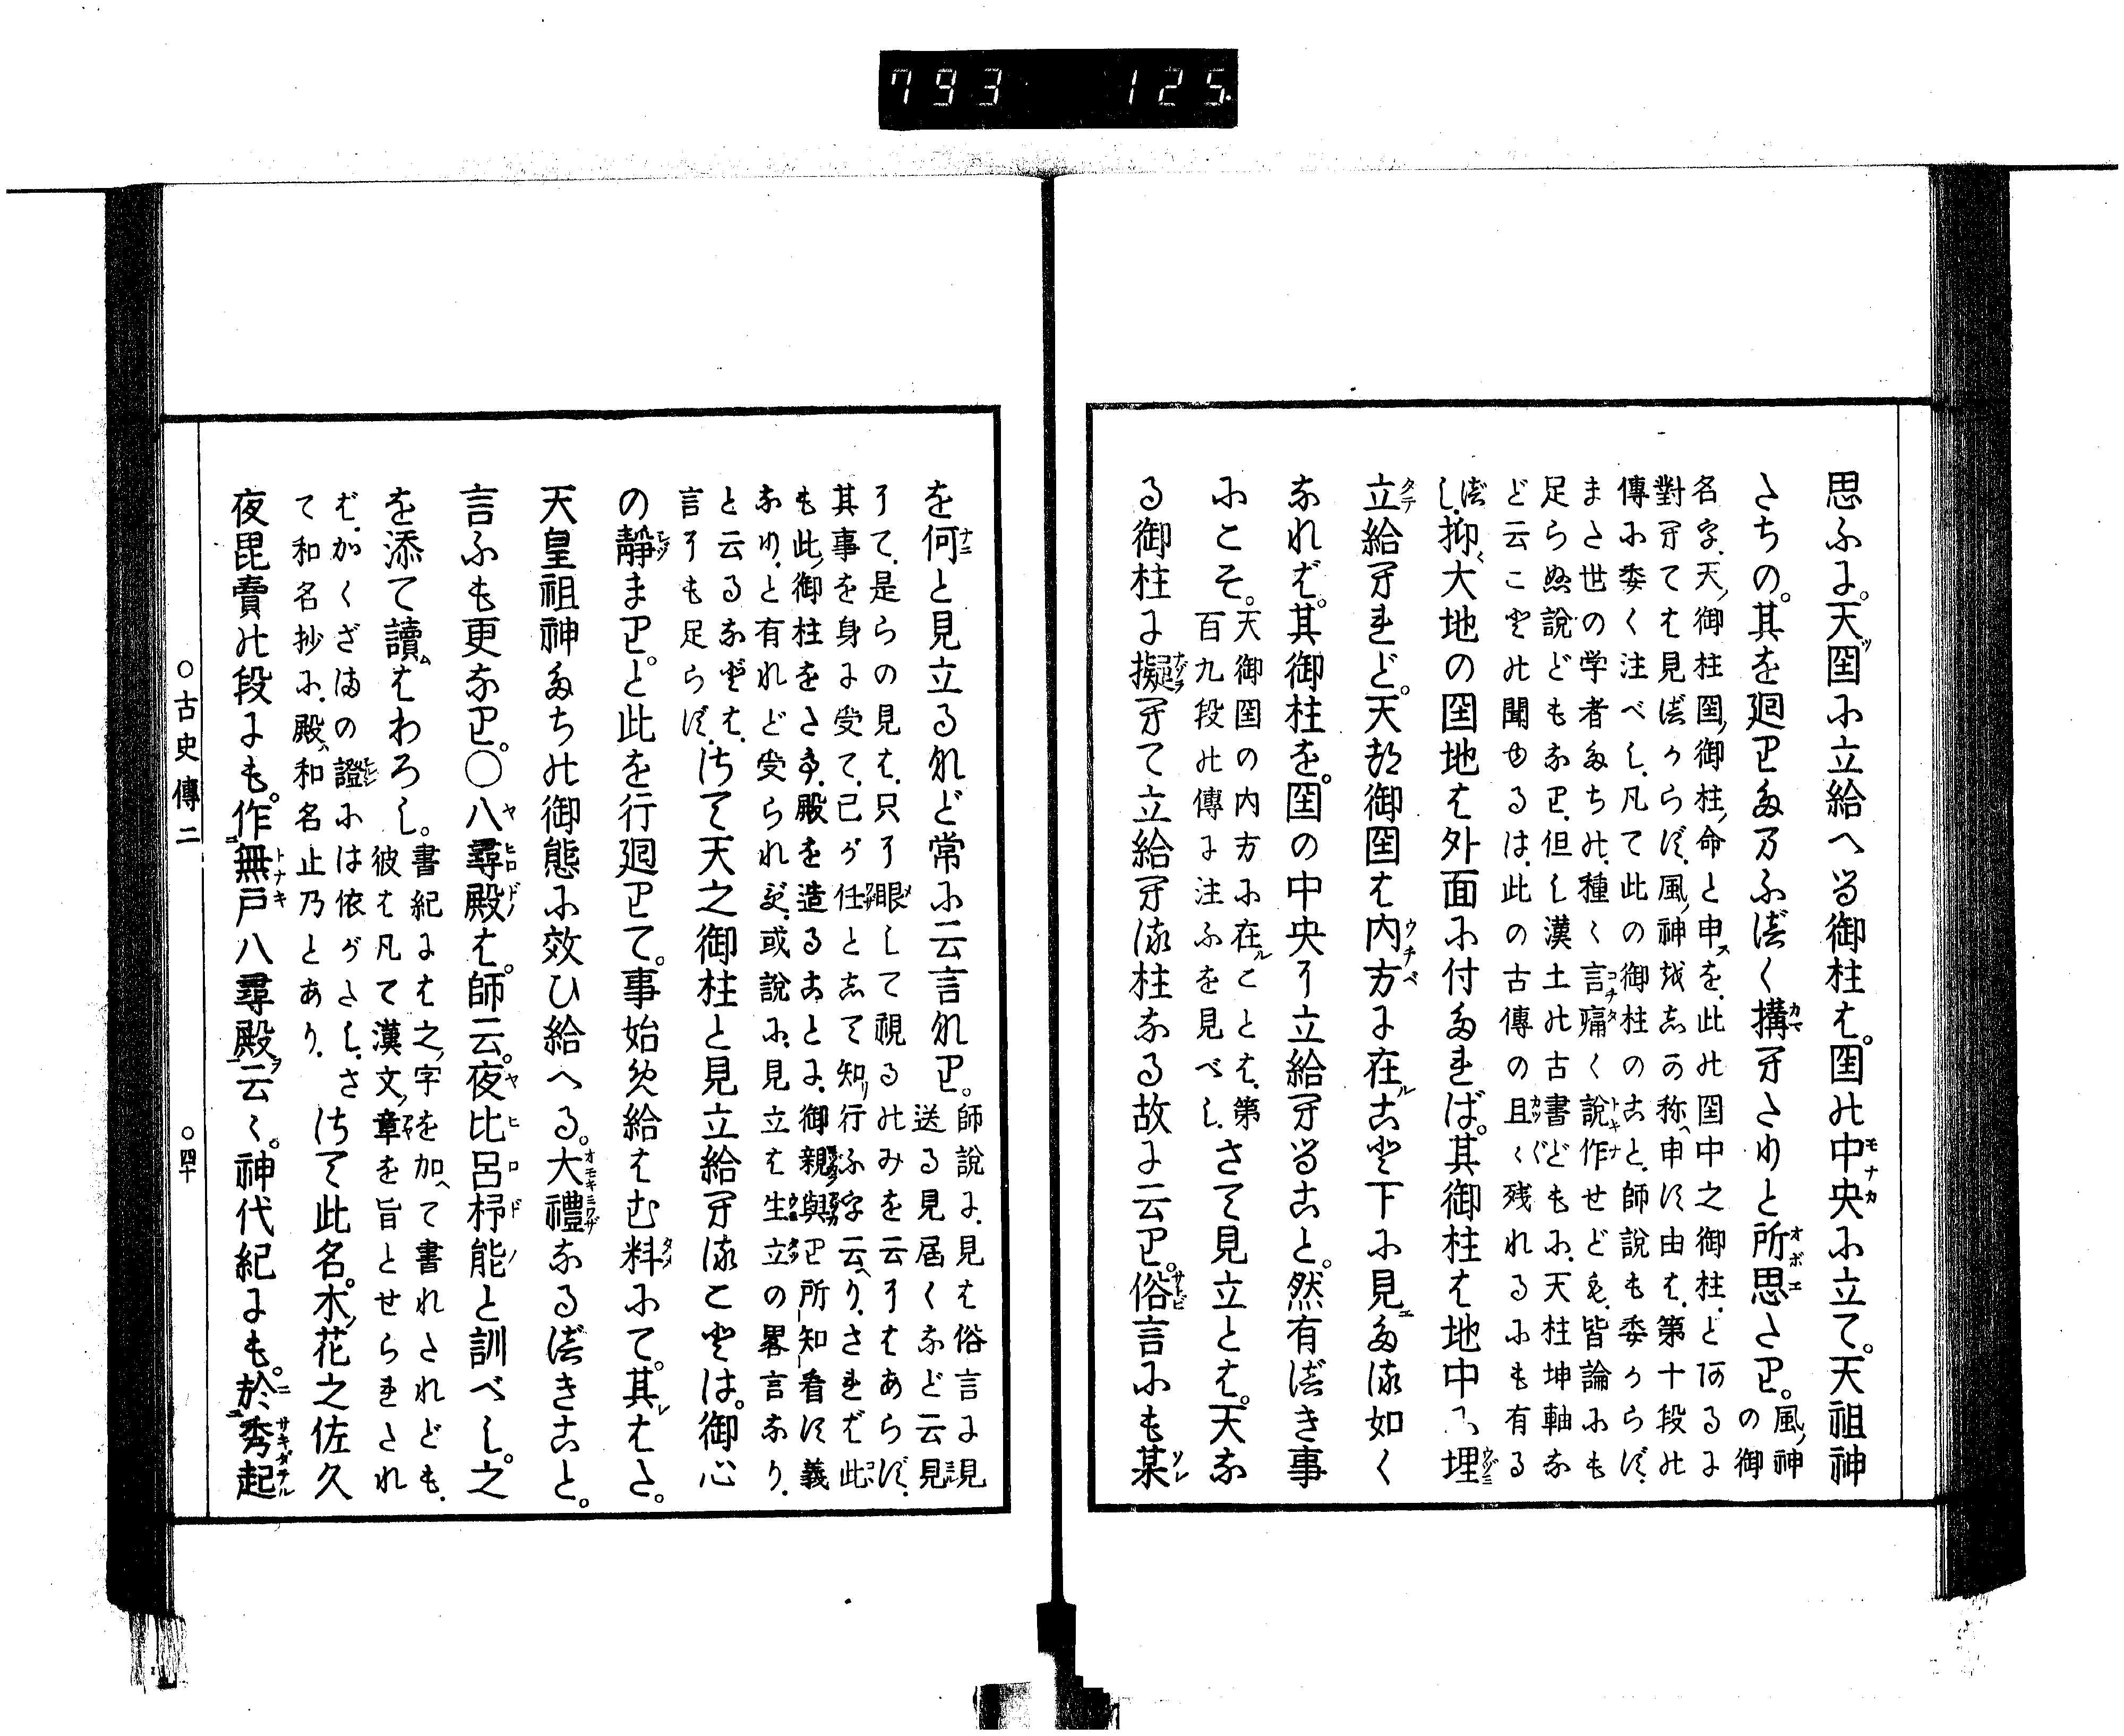 793 125
思ふに。天ッ国に立給へる御柱は。国の中央に立て。天祖神
たちの。其を廻りたまふべく構けたりと所思たり。風ノ神の御
名字、天ノ御柱国ノ御柱ノ命と申スを、此の国中之御柱、と有るに
對けては見べからず、風ノ神をしか称ヘ申す由は、第十段の
傳に委く注べし、凡て此の御柱のこと、師說も委からず、
また世の学者たちの、種々言痛く說作せども、皆論にも
足らぬ說どもなり、但し漢土の古書どもに、天柱坤軸な
ど云ことの聞ゆるは、此の古傳の且々残れるにも有る
べし、抑々大地の国地は外面に付たれば。其御柱は地中に埋
立給けれど。天ツ御国は内方に在ること下に見エたる如く
なれば。其御柱を。国の中央に立給けること。然有べき事
にこそ。天御国の内方に在ルことは、第百九段の傳に注ふを見べし、さて見立とは。天な
る御柱に擬けて立給ける柱なる故に云り。俗言にも某
を何と見立るなど常に云言なり。師說に、見は俗言に見
送る見届くなど云見
にて、是らの見は、只に眼して視るのみを云にはあらず、
其事を身に受て、已が任として知リ行ふ字云ヘり、されば此
も此ノ御柱をたて、殿を造ることに、御親與り所知看す義
なり、と有れど受られず、或說に、見立は生立の畧言なり、
と云るなどは、
言にも足らず、さて天之御柱と見立給けることは。御心
の靜まりと此を行廻りて。事始め給はむ料にて。其はた。
天皇祖神たちの御態に效ひ給へる。大禮なるべきこと。
言ふも更なり。○八尋殿は。師云。夜比呂杼能と訓べし。之
を添て讀ムはわろし。書紀には之ノ字を加ヘて書れたれども、
彼は凡て漢文ノ章を旨とせられたれ
ば、かくざまの證には依がたし、さ
て和名抄に、殿ハ和名止乃とあり、さて此名。木ノ花之佐久
夜毘賣の段にも。作無戸八尋殿ヲ云々。神代紀にも。於秀起
○古史傳二 ○四十